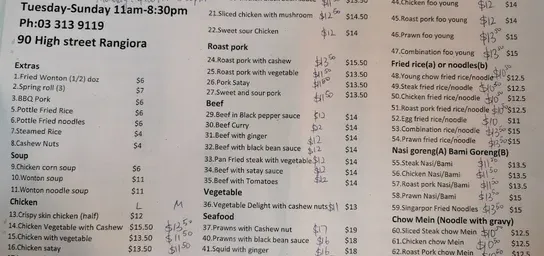 Tuesday-Sunday 11am-8:30pm
Ph:03 313 9119
90 High street Rangiora
Extras
1.Fried Wonton (1/2) doz $6
2.Spring roll (3) $7
3.BBQ Pork $6
5.Pottle Fried Rice $6
6.Pottle Fried noodles $6
7.Steamed Rice $4
8.Cashew Nuts $4
Soup
9.Chicken corn soup $6
10.Wonton soup $11
11.Wonton noodle soup $11
Chicken L M
13.Crispy skin chicken (half) $12
14.Chicken Vegetable with Cashew $15.50 $13.50
15.Chicken with vegetable $13.50 $11.50
16.Chicken satay $13.50 $11.50
21.Sliced chicken with mushroom $12.50 $14.50
22.Sweet sour Chicken $12 $14
Roast pork
24.Roast pork with cashew $13.50 $15.50
25.Roast pork with vegetable $11.50 $13.50
26.Pork Satay $11.50 $13.50
27.Sweet and sour pork $11.50 $13.50
Beef
29.Beef in Black pepper sauce $12 $14
30.Beef Curry $12 $14
31.Beef with ginger $12 $14
32.Beef with black bean sauce $12 $14
33.Pan Fried steak with vegetable $12 $14
34.Beef with satay sauce $12 $14
35.Beef with Tomatoes $12 $14
Vegetable
36.Vegetable Delight with cashew nuts $11 $13
Seafood
37.Prawns with Cashew nut $17 $19
40.Prawns with black bean sauce $16 $18
41.Squid with ginger $16 $18
44.Chicken foo young $12 $14
45.Roast pork foo young $12 $14
46.Prawn foo young $13.50 $15
47.Combination foo young $13.50 $15
Fried rice(a) or noodles(b)
48.Young chow fried rice/noodle $10.50 $12.5
49.Steak fried rice/noodle $10.50 $12.5
50.Chicken fried rice/noodle $10.50 $12.5
51.Roast pork fried rice/noodle $10.50 $12.5
52.Egg fried rice/noodle $10 $11
53.Combination rice/noodle $13.50 $15
54.Prawn fried rice/noodle $13.50 $15
Nasi goreng(A) Bami Goreng(B)
55.Steak Nasi/Bami $11.50 $13.5
56.Chicken Nasi/Bami $11.50 $13.5
57.Roast pork Nasi/Bami $11.50 $13.5
58.Prawn Nasi/Bami $13.50 $15
59.Singarpor Fried Noodles $13.50 $15
Chow Mein (Noodle with gravy)
60.Sliced Steak chow Mein $10.50 $12.5
61.Chicken chow Mein $10.50 $12.5
62.Roast Pork chow Mein $12.5